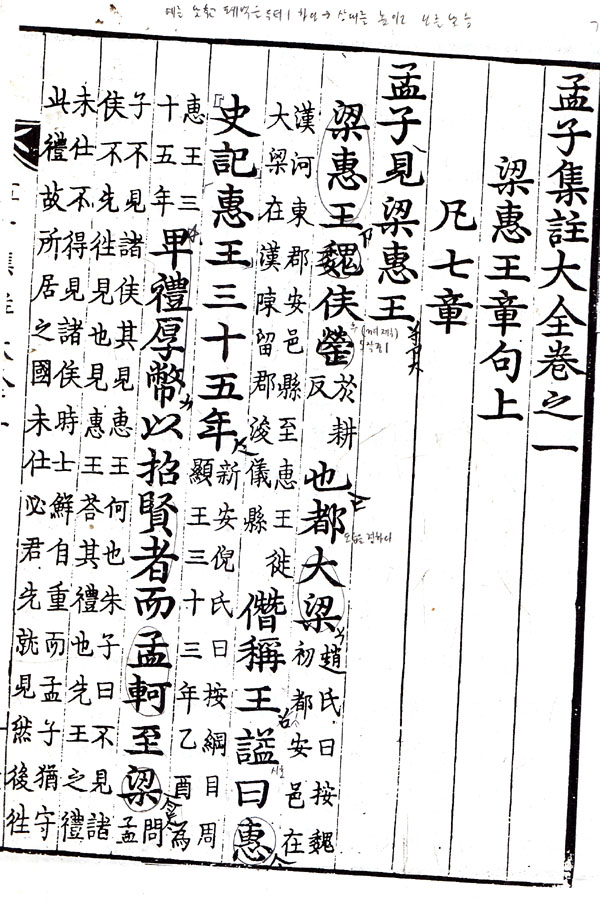 孟子集註大全卷之一
梁惠王章句上
凡七章
孟子見梁惠王
梁惠王魏侯罃於耕反也都大梁趙氏曰按魏初都安邑在
漢河東郡安邑縣至惠王徙大梁在漢陳留郡浚儀縣僭稱王諡曰惠
史記惠王三十五年新安倪氏曰按綱目周顯王三十三年乙酉為
惠王三十五年卑禮厚幣以招賢者而孟軻至梁問孟
子不見諸侯其見惠王何也朱子曰不見諸侯不先往見也見惠王荅其禮也先王之禮
未仕不得見諸侯時士鮮自重而孟子猶守此禮故所居之國未仕必君先就見然後往
시호